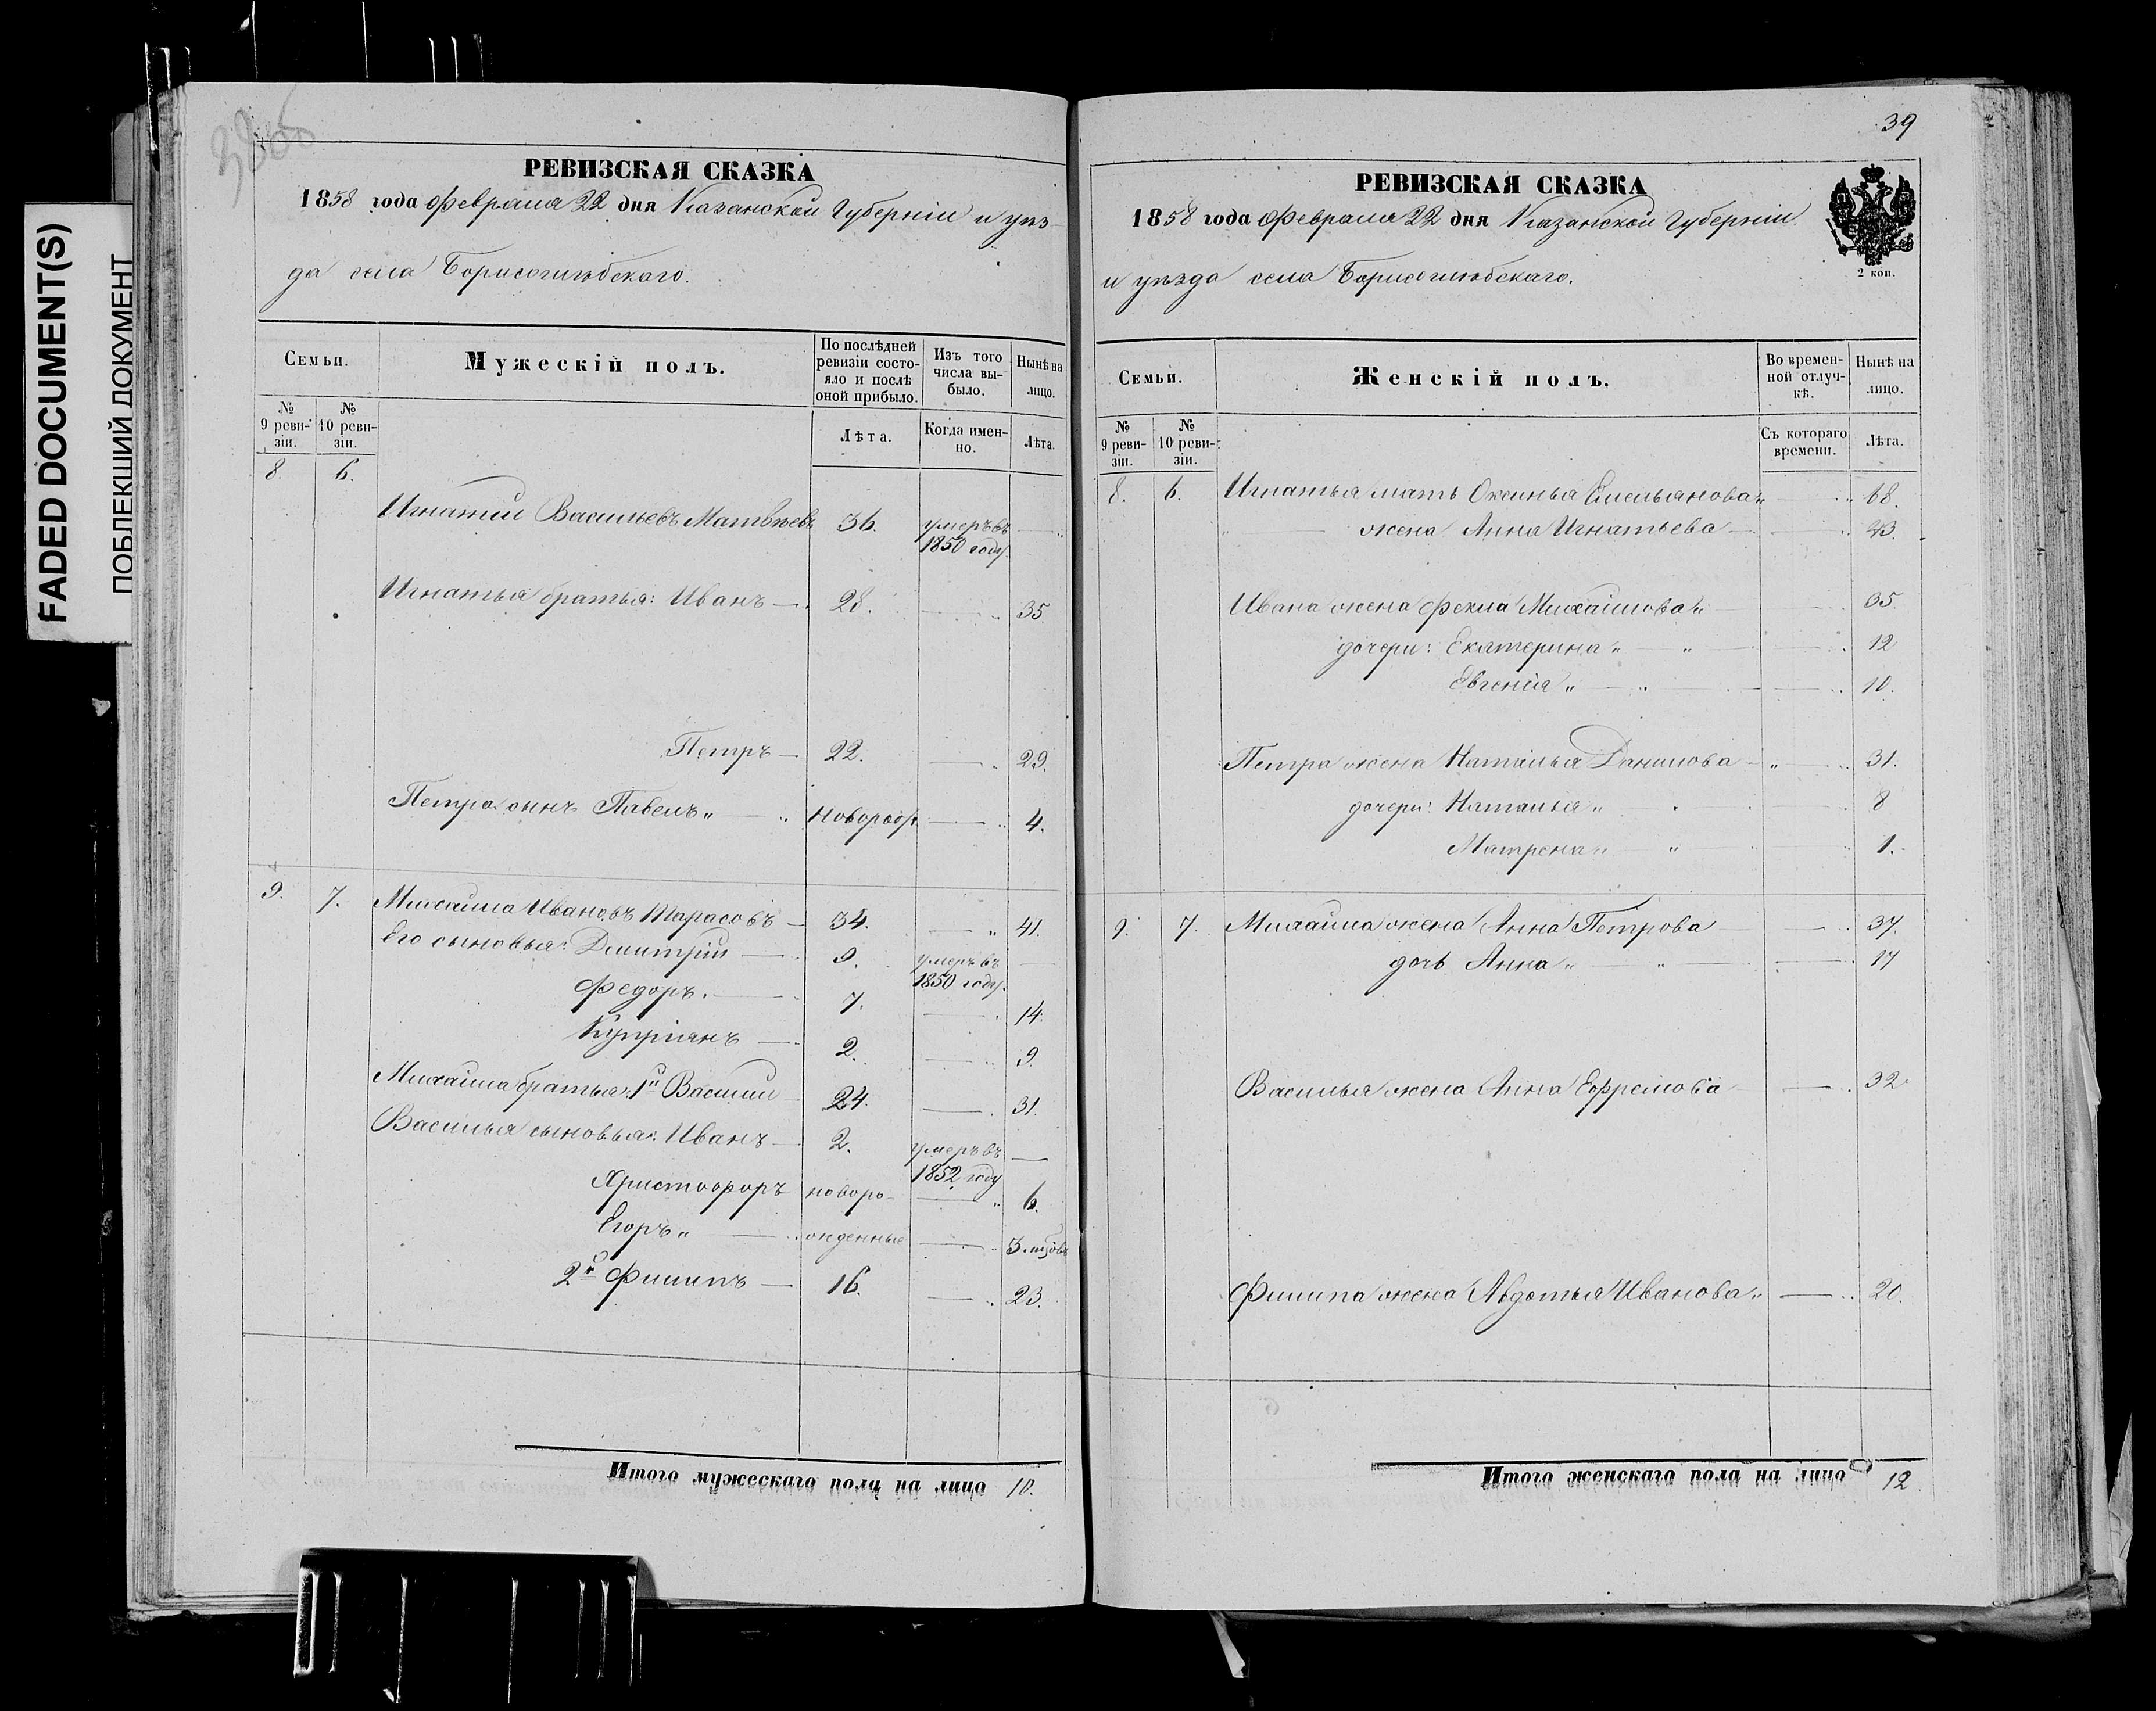 FADED DOCUMENT(S)
ПОБЛЕКШИЙ ДОКУМЕНТ
РЕВИЗСКАЯ СКАЗКА
1858 года Февраля 22 дня Казанской Губерніи и уѣз-
да села Борисоглѣбскаго.
Семьи.
Мужескій полъ.
По послѣдней ревизіи состо-яло и послѣ оной прибыло.
Изъ того числа вы-было.
Нынѣ на лицо.
№ 9 реви-зіи.
№ 10 реви-зіи.
Лѣта.
Когда имен-но.
Лѣта.
8. 6.
Игнатій Васильевъ Матвѣевъ 36. умеръ въ 1850 году.
Игнатья братья: Иванъ — 28. — 35
Петръ — 22. — 29.
Петра сынъ Павелъ „ — новорож. — 4.
9. 7. Михайла Ивановъ Тарасовъ — 34. — „ 41.
Его сыновья: Дмитрій — 9. умеръ въ 1850 году.
Федоръ. — 7. — 14.
Купріянъ — 2. — 9.
Михайла братья: 1й Василій 24. — 31.
Василья сыновья: Иванъ — 2. умеръ въ 1852 году —
Христофоръ новоро- — „ 6.
Егоръ „ — жденные — 3. мѣсов.
2й Филипъ — 16. — 23.
Итого мужескаго пола на лицо 10.
39
РЕВИЗСКАЯ СКАЗКА
1858 года Февраля 22 дня Казанской Губерніи
и уѣзда села Борисоглѣбскаго.
2 коп.
Семьи.
Женскій полъ.
Во времен-ной отлуч-кѣ.
Нынѣ на лицо.
№ 9 реви-зіи.
№ 10 реви-зіи.
Съ котораго времени.
Лѣта.
8. 6. Игнатья мать Оксинья Емельянова „ — 68.
„ — жена Анна Игнатьева — 43.
Ивана жена Фекла Михайлова „ 35.
дочери: Екатерина „ — „ — 12
Евгенія „ — „ — 10.
Петра жена Наталья Данилова — „ — 31.
дочери: Наталья „ — 8
Матрена „ „ 1.
9. 7. Михайла жена Анна Петрова — 37.
дочь Анна „ — „ — 17
Василья жена Анна Ефремова — 32
Филипа жена Авдотья Иванова „ — 20.
Итого женскаго пола на лицо 12